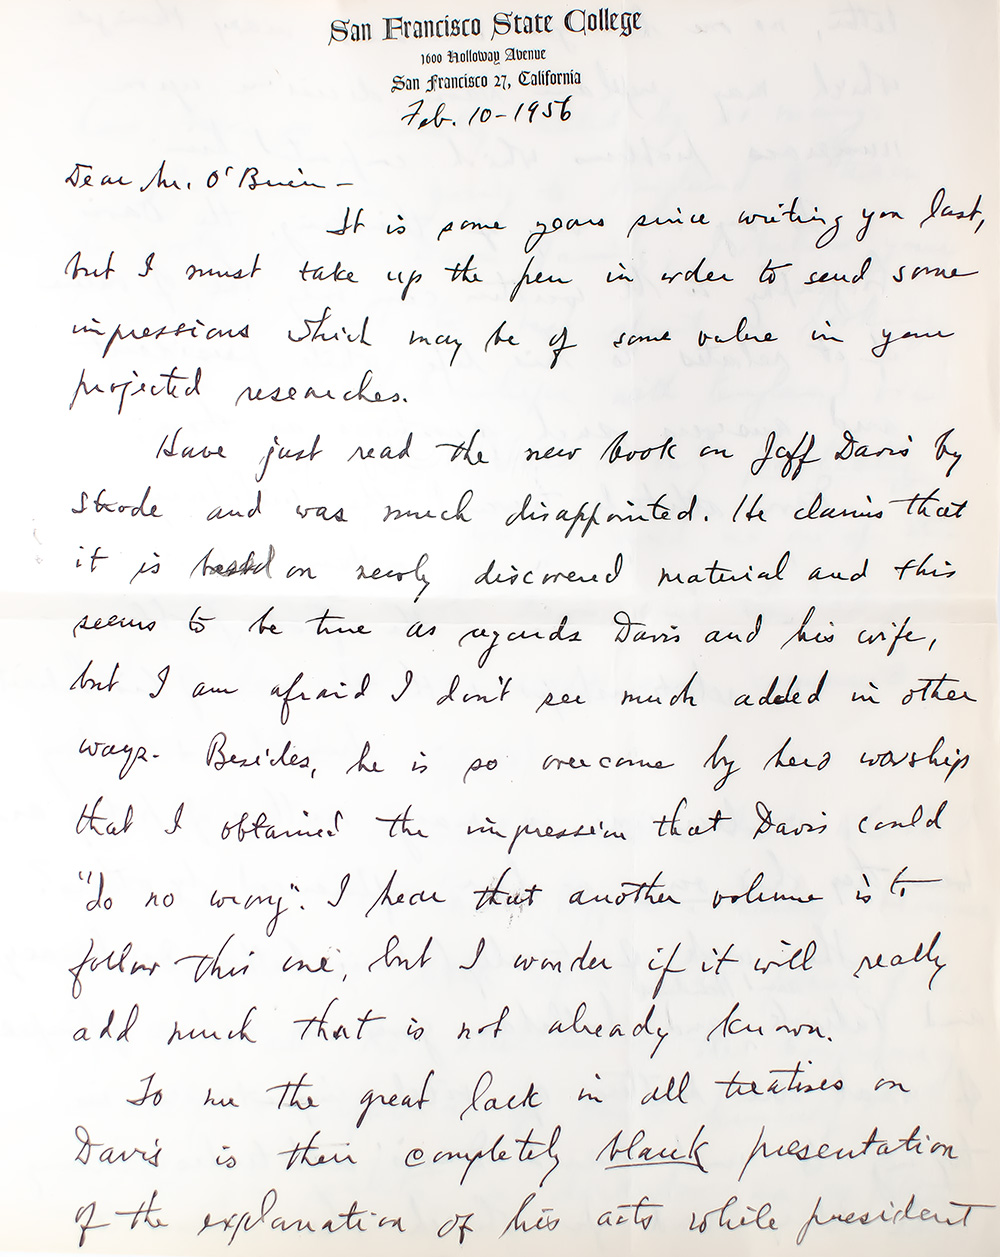 San Francisco State College
1600 Holloway Avenue
San Francisco 27, California
Feb. 10-1956
Dear Mr. O'Brien-
It is some years since writing you last,
but I must take up the pen in order to send some
impressions which may be of some value in your
projected researches.
Have just read the new book on Jeff Davis by
Strode and was much disappointed. He claims that
it is based on newly discovered material and this
seems to be true as regards Davis and his wife,
but I am afraid I don't see much added in other
ways. Besides, he is so overcome by hero worship
that I obtained the impression that Davis could
"do no wrong". I hear that another volume is to
follow this one, but I wonder if it will really
add much that is not already known.
To me the great lack in all treatises on
Davis is their completely blank presentation
of the explanation of his acts while president